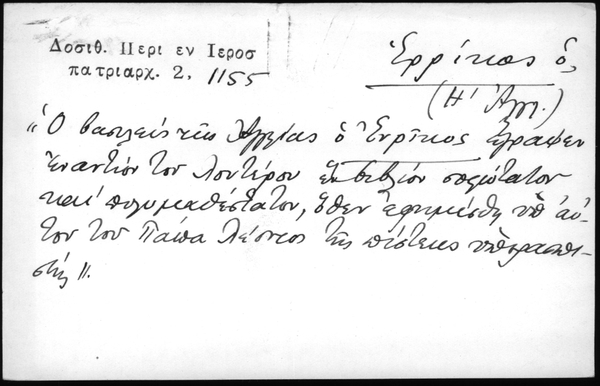 Δοσιθ. Περι εν Ιεροσ
πατριαρχ. 2, 1155
Ἐρρίκος ὁ,
(Η' Ἀγγ.)
«Ὁ βασιλεὺς τῆς Ἀγγλίας ὁ Ἐνρῖκος ἔγραψεν
ἐναντίον τοῦ Λουτέρου ἓν βιβλίον
καὶ πολυμαθέστατον, ὅθεν ἐφημίσθη ὑπ' αὐ-
τοῦ τοῦ Πάπα Λέοντος τῆς πίστεως ὑπερασπι-
στής».